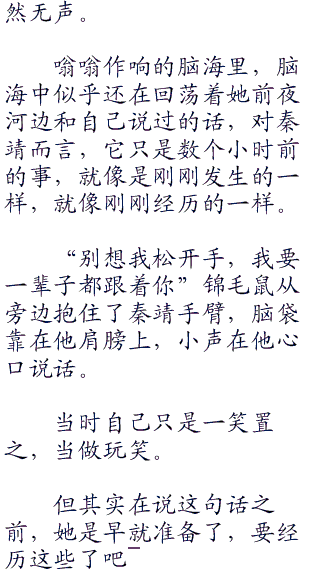 然无声。
翁翁作响的脑海里，脑
海中似乎还在回荡着她前夜
河边和自己说过的话，对秦
靖而言，它只是数个小时前
的事，就像是刚刚发生的一
样，就像刚刚经历的一样。
“别想我松开手，我要
一辈子都跟着你”锦毛鼠从
旁边抱住了秦靖手臂，脑袋
靠在他肩膀上，小声在他心
口说话。
当时自己只是一笑置
之，当做玩笑。
但其实在说这句话之
前，她是早就准备了，要经
历这些了吧